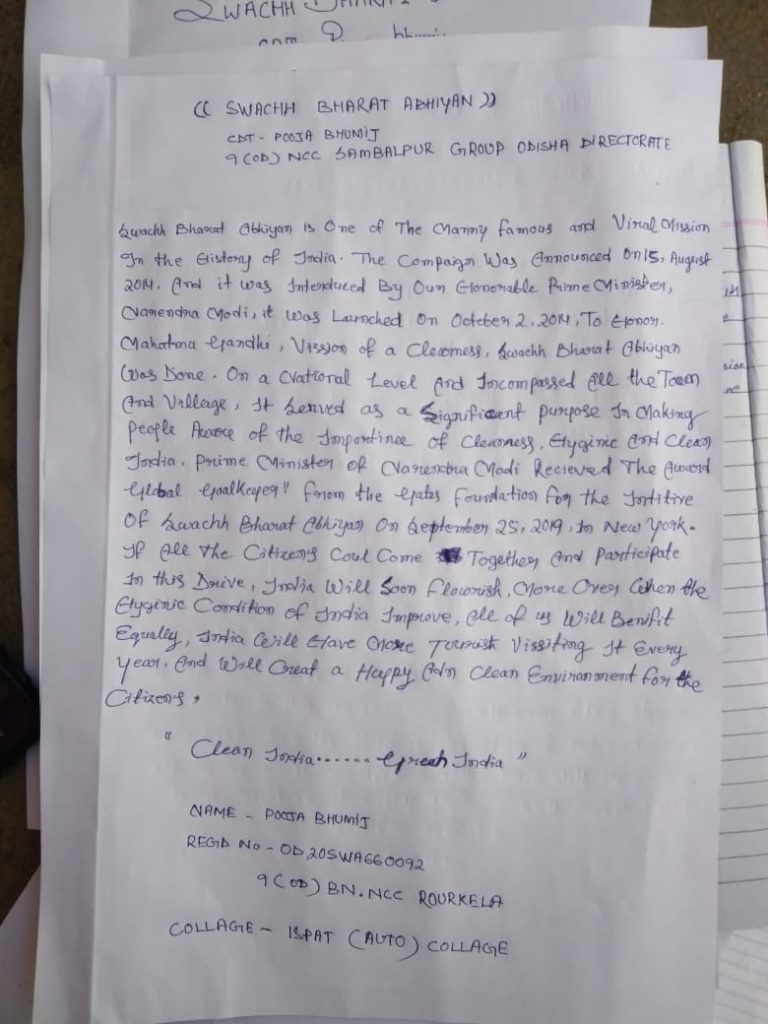 SWACHH BHARAT
(( SWACHH BHARAT ABHIYAN ))
CDT - POOJA BHUMIJ
9 (OD) NCC SAMBALPUR GROUP ODISHA DIRECTORATE
Swachh Bharat Abhiyan is One of The Manny famous and Viral Mission
In the History of India. The Compaign Was Announced On 15, August
2014. And it was Intenduced By Our Honorable Prime Minister,
Narendra Modi, it was Launched On October 2, 2014, To Honor.
Mahatma Gandhi, Vission of a Cleanness, Swachh Bharat Abhiyan
Was Done. On a National Level And Incompassed All the Town
And Village, It Served as a Significent purpose In Making
people Aware of the Importince of Cleanness, Hyginic And Clean
India, Prime Minister of Narendra Modi Recieved The Award
Global Goalkeeper" from the Gates Foundation for the Intitive
Of Swachh Bharat Abhiyan On September 25, 2019, In New York.
If All the Citizens Coul Come Together And Participate
In this Drive, India Will Soon Flourish, More Over When the
Hyginic Condition of India Improve, All of us Will Benifit
Equally, India Will Have More Tourist Vissiting It Every
Year. And Will Creat a Happy Adn Clean Enviranment for the
Citizens,
" Clean India...... Green India "
NAME - POOJA BHUMIJ
REGD NO - OD20SWA660092
9 (OD) BN. NCC ROURKELA
COLLAGE - ISPAT (AUTO) COLLAGE